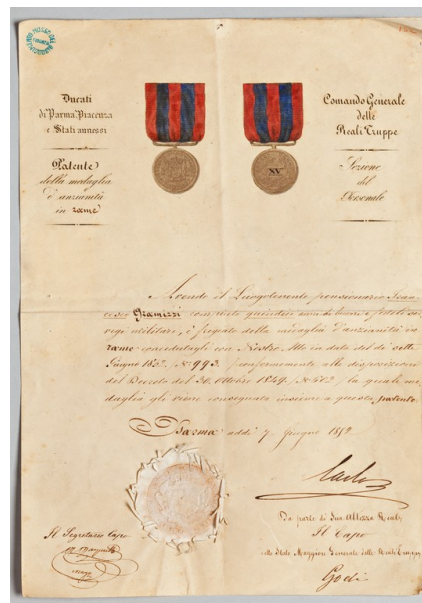 Ducati
di Parma, Piacenza
e Stati annessi
Patente
della medaglia
d'anzianità
in rame
Comando Generale
delle
Reali Truppe
Sezione
del
Personale
XV
Avendo il Luogotenente pensionario
Gramizzi compiuto quindici anni di buoni e fedeli
vigi militari, è fregiato della medaglia d'anzianità in
rame concedutagli con Nostro Atto in data del dì sette
Giugno N.º 993, conformemente alle disposizioni
del Decreto del Ottobre 1849, la quale me
daglia gli viene consegnata insieme a questa patente.
Parma addì 7 Giugno 1852.
Carlo
Da parte di Sua Altezza Reale,
Il Capo
dello Stato Maggiore Generale delle Reali Truppe
Godi
Il Segretario Capo